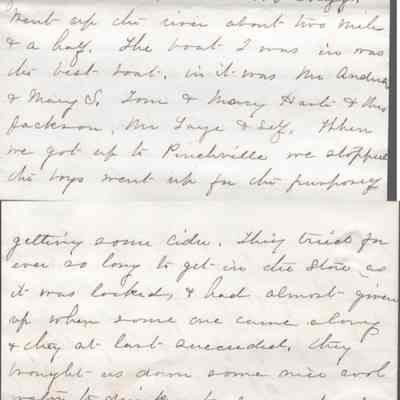 Went up the river about two mile
& a half. The boat I was in was
the best boat. in it was Mr Andrew
& Mary S. Tom & Mary Hart & Miss
Jackson, Mr Laye & Self. When
we got up to Pinchville we stopped
the boys went up for the purpose of
getting some Cider. They tried for
ever so long to get in the Store as
it was locked, & had almost given
up when some one came along
& they at last succeeded. They
brought us down some nice cool
water to drink